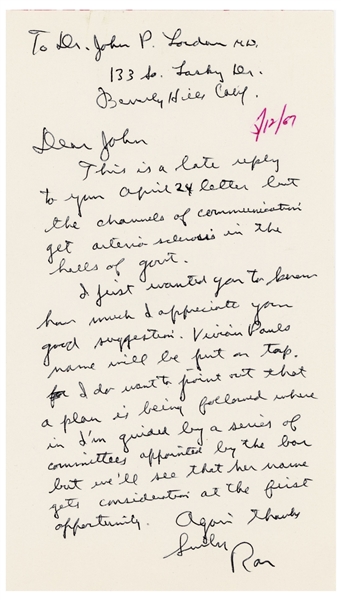 To Dr. John P. Jordan M.D.
133 So. Lasky Dr.
Beverly Hills Calif.
7/12/67
Dear John
This is a late reply
to your April 24 letter but
the channels of communication
get arterio sclerosis in the
halls of govt.
I just wanted you to know
how much I appreciate your
good suggestion. Vivian
name will be put on tap.
I do want to point out that
a plan is being followed where
in I'm guided by a series of
committees appointed by the bar
but we'll see that her name
gets consideration at the first
opportunity. Again thanks
Ron